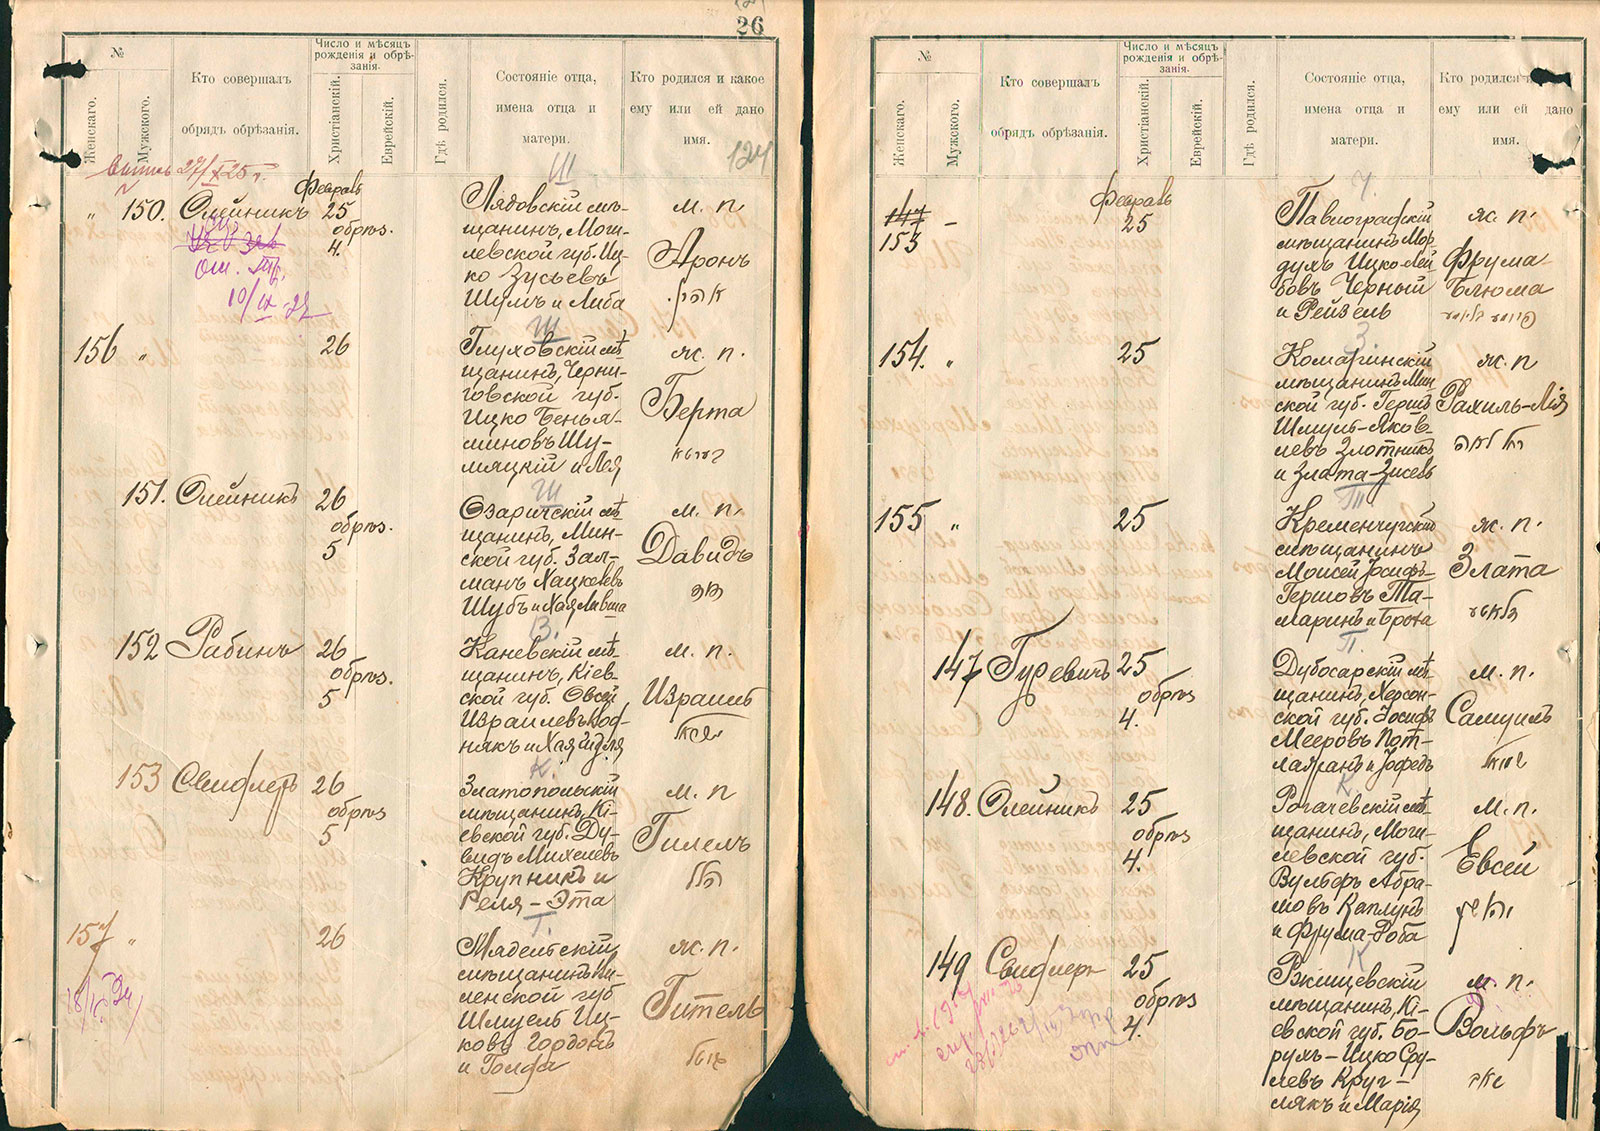 26
№
Женскаго.
Мужского.
Кто совершалъ
обрядъ обрѣзанія.
Число и мѣсяцъ
рожденія и обрѣ-
занія.
Христіанскій.
Еврейскій.
Гдѣ родился.
Состояніе отца,
имена отца и
матери.
Кто родился и какое
ему или ей дано
имя.
124
27/X 25 г.
Ш
" 150. Олейникъ
10/IX - 22
Февраль
25
обрѣз.
4.
Лядовскій мѣ-
щанинъ, Моги-
левской губ. Иц-
ко Зусьевъ
Шумъ и Либа
м. п.
Аронъ
אהרן.
Ш
156 "
26
Глуховскій мѣ-
щанинъ, Черни-
говской губ.
Ицко Бенья-
миновъ Шу-
мяцкій и Лея
ж. п.
Берта
Ш
151. Олейникъ
26
обрѣз.
5
Озаричскій мѣ-
щанинъ, Мин-
ской губ. Зал-
манъ Хацкелевъ
Шубъ и Хая
м. п.
Давидъ
דוד
В.
152 Рабинъ
26
обрѣз.
5
Каневскій мѣ-
щанинъ, Кіев-
ской губ. Овсей
Израилевъ
и Хая
м. п.
Израиль
К.
153 Свифлеръ
26
обрѣз
5
Златопольскій
мѣщанинъ, Кі-
евской губ. Ду-
видъ Михелевъ
Крупникъ и
Рейля-Эта
м. п
Гилель
הלל
Г.
157 "
26
мѣщанинъ Ви-
ленской губ
Шмуель Иц-
ковъ Гордонъ
и Голда
ж. п.
Гитель
גיטל
№
Женскаго.
Мужского.
Кто совершалъ
обрядъ обрѣзанія.
Число и мѣсяцъ
рожденія и обрѣ-
занія.
Христіанскій.
Еврейскій.
Гдѣ родился.
Состояніе отца,
имена отца и
матери.
Кто родился и
ему или ей дано
имя.
Ч.
147 -
153
Февраль
25
Павлоградскій
мѣщанинъ Мор-
духъ Ицко-Лей-
бовъ Черный
и Рейзель
ж. п.
Фрума-
Блюма
פרומע בליומע
З.
154. "
25
мѣщанинъ Мин-
ской губ. Гершъ
Шмуль-Яков-
левъ Злотникъ
и Злата-
ж. п
Рахиль-Лія
רחל לאה
Т.
155 "
25
Кременчугскій
мѣщанинъ
Моисей Іосифъ-
Гершовъ Та-
маринъ и Броха
ж. п.
Злата
זלאטע
П.
147 Гуревичъ
25
обрѣз
4.
Дубосарскій мѣ-
щанинъ, Херсон-
ской губ. Іосифъ
Мееровъ Пот-
м. п.
Самуилъ
שמואל
К.
148. Олейникъ
25
обрѣз
4.
Рогачевскій мѣ-
щанинъ, Моги-
левской губ.
Вульфъ Абра-
мовъ Каплунъ
и Фрума-Роба
м. п.
Евсей
К
149 Свифлеръ
25
обрѣз
4.
Ржищевскій
мѣщанинъ, Кі-
евской губ. Бо-
рухъ-Ицко Сру-
левъ Круг-
лякъ и Марія
м. п.
Вольфъ
זאב